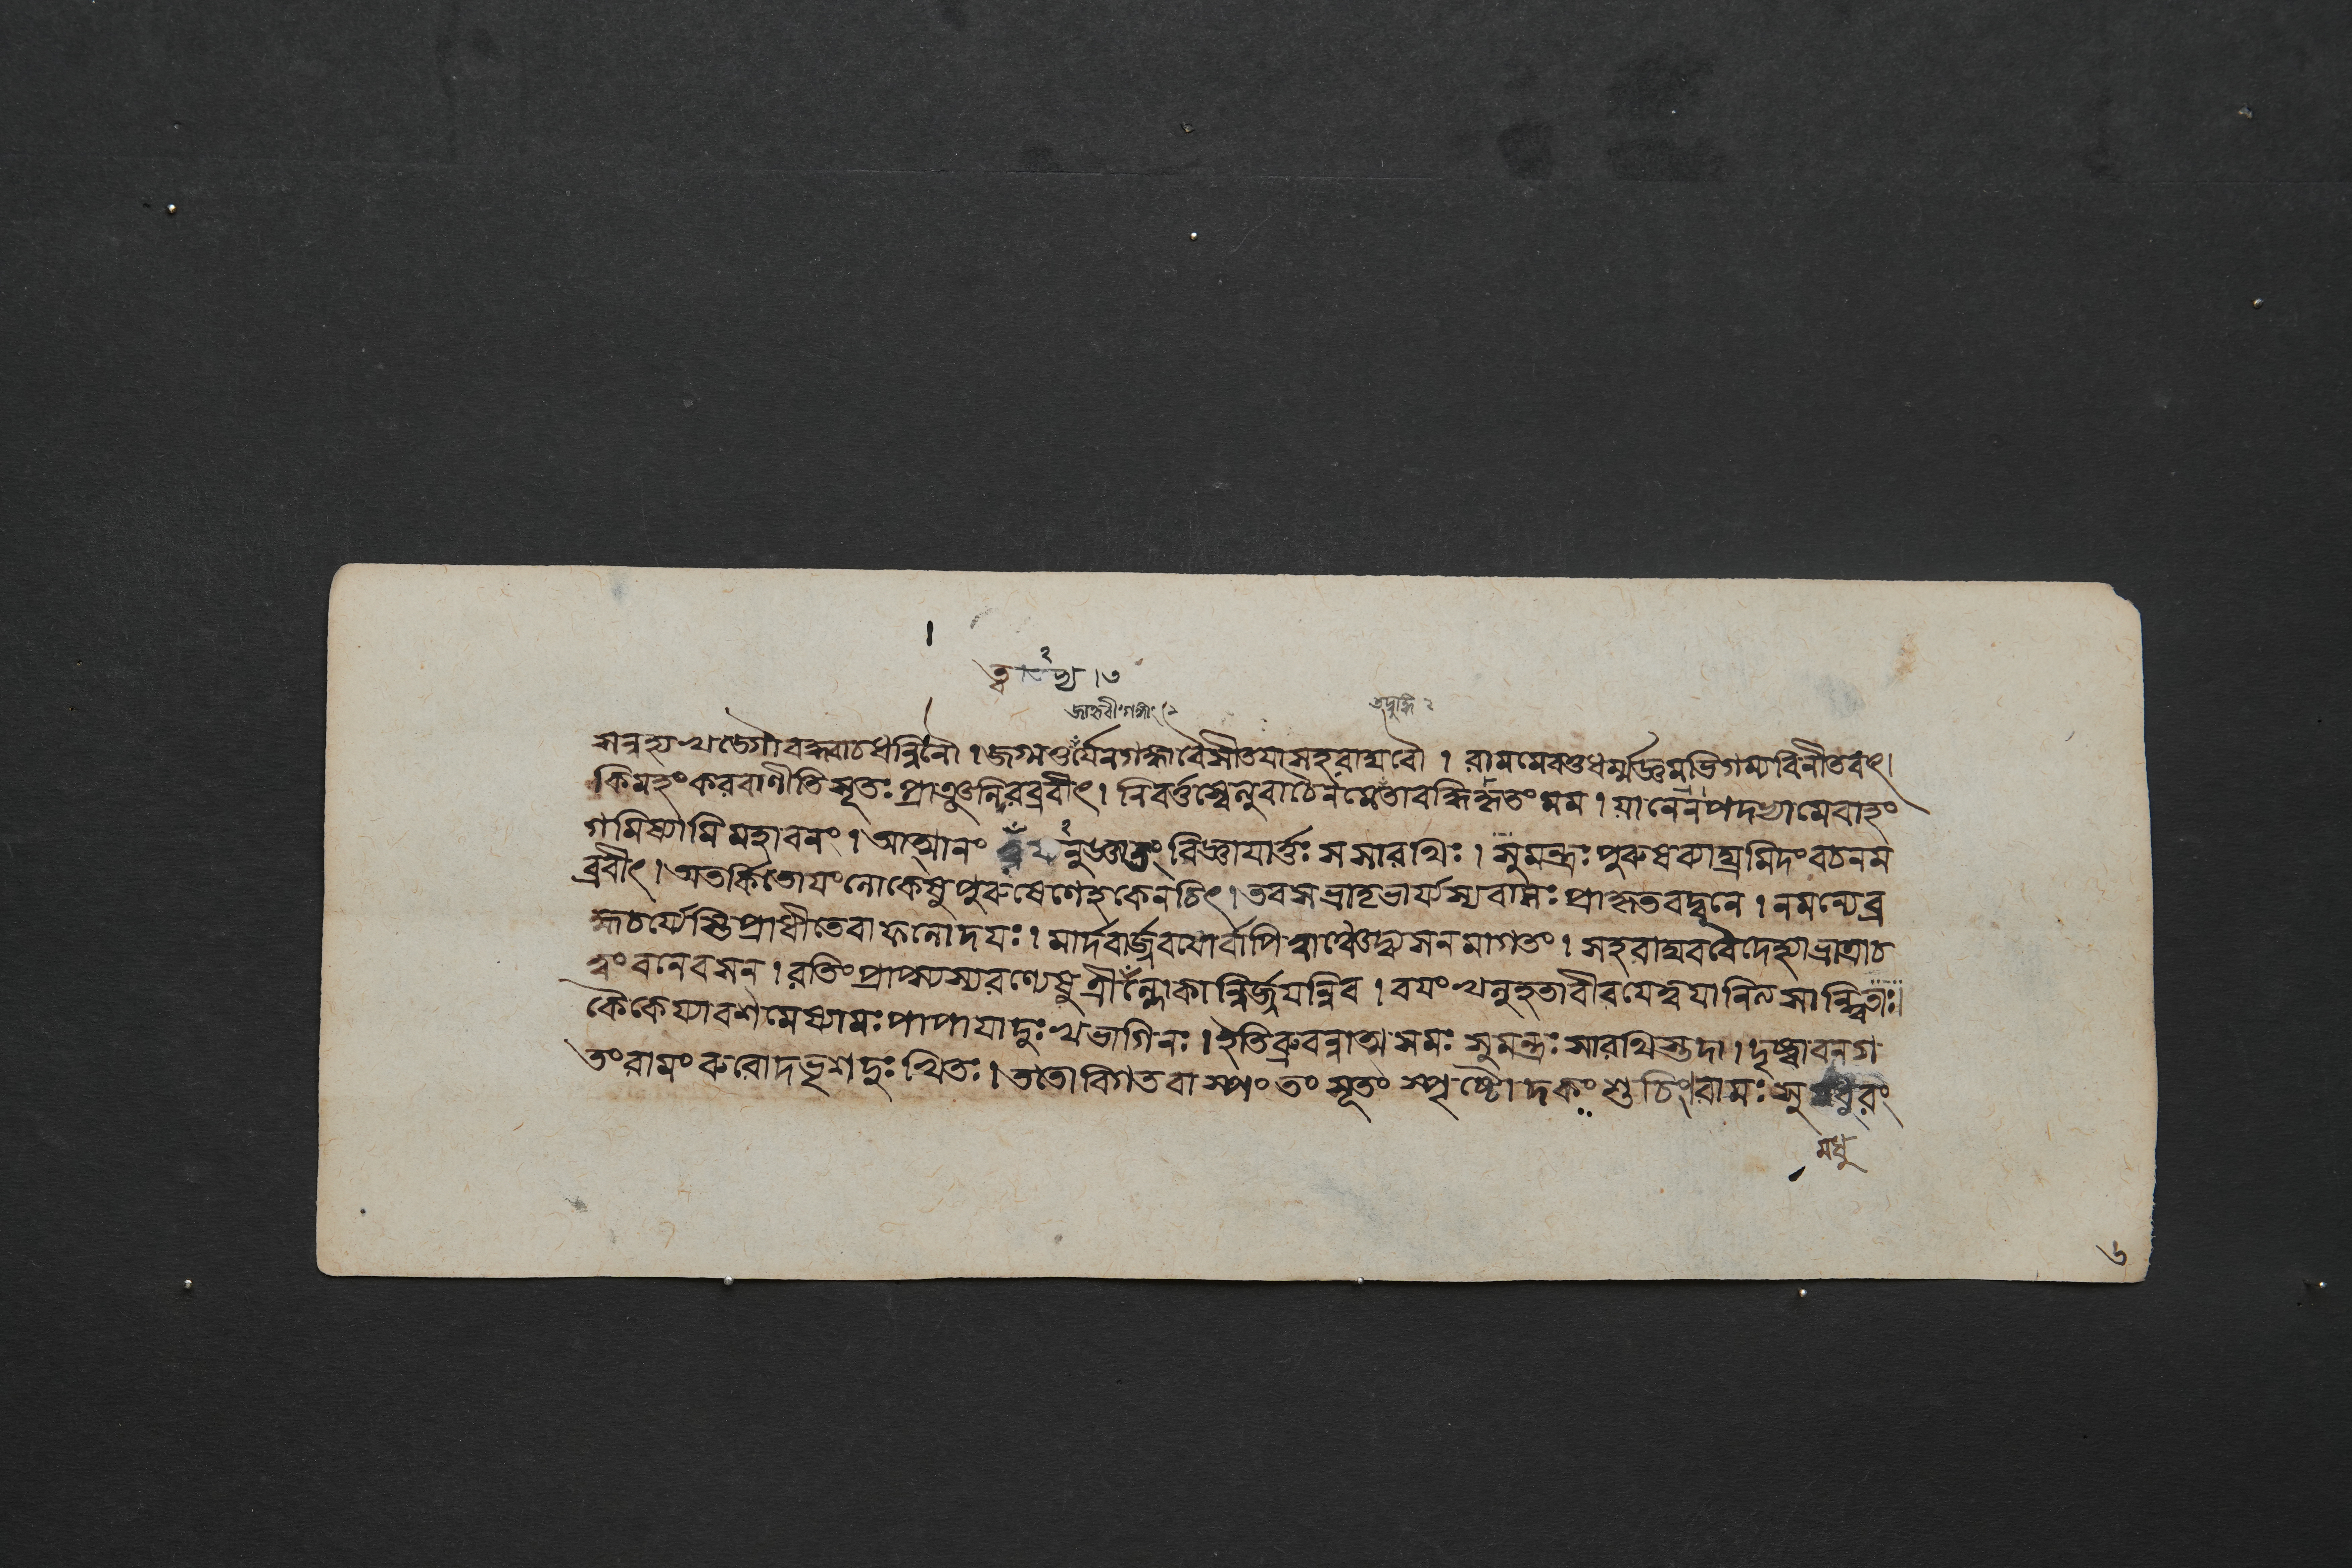 ত্ব ভ্য । ৩
জাহ্নবী গঙ্গাং ২
সন্নহ্যখড্গৌবদ্ধ্বাচধন্বিনৌ। জগ্মতুর্যেনগঙ্গাংবৈসীতয়াসহরাঘবৌ। রামমেবতুধর্ম্মজ্ঞমভিগম্যবিনীতবৎ।
কিমহংকরবাণীতিসূতঃপ্রাঞ্জলিরব্রবীৎ। নিবর্ত্তস্বেত্যুবাচৈনমেতাবদ্ধিকৃতংমম। যানেনপদভ্যামেবাহং
গমিষ্যামিমহাবনং। আত্মানং ত্বভ্যনুজ্ঞাতং বিজ্ঞায়ার্ত্তঃ সসারথিঃ। সুমন্ত্রঃ পুরুষব্যাঘ্রমিদংবচনম
ব্রবীৎ। অতর্কিতোয়ংলোকেষুপুরুষেণেহকেনচিৎ। তবসভ্রাতৃভার্য্যস্যবাসঃ প্রাকৃতবদ্বনে। নমন্যেব্র
হ্মচর্য্যেস্তিপ্রাধীতেবাফলোদয়ঃ। মার্দবার্জ্জবয়োর্বাপিত্বাঞ্চেদ্ব্যসনমাগতং। সহরাঘববৈদেহ্যাভ্রাত্রাচ
ত্বংবনেবসন। রতিংপ্রাপ্স্যস্যরণ্যেষুত্রীঁল্লোকান্নির্জ্জয়ন্নিব। বয়ংখলুহতাবীরযেত্বয়ানিলসান্ত্বিতাঃ।
কৈকেয্যাবশমেষ্যামঃপাপায়াদুঃখভাগিনঃ। ইতিব্রুবন্নাত্মসমঃ সুমন্ত্রঃ সারথিস্তদা। দৃষ্ট্বাবনগ
তংরামংরুরোদভৃশদুঃখিতঃ। ততোবিগতবাষ্পং তং সূতং স্পৃষ্টোদকং শুচিং। রামঃ সুমধুরং
মধু
৬